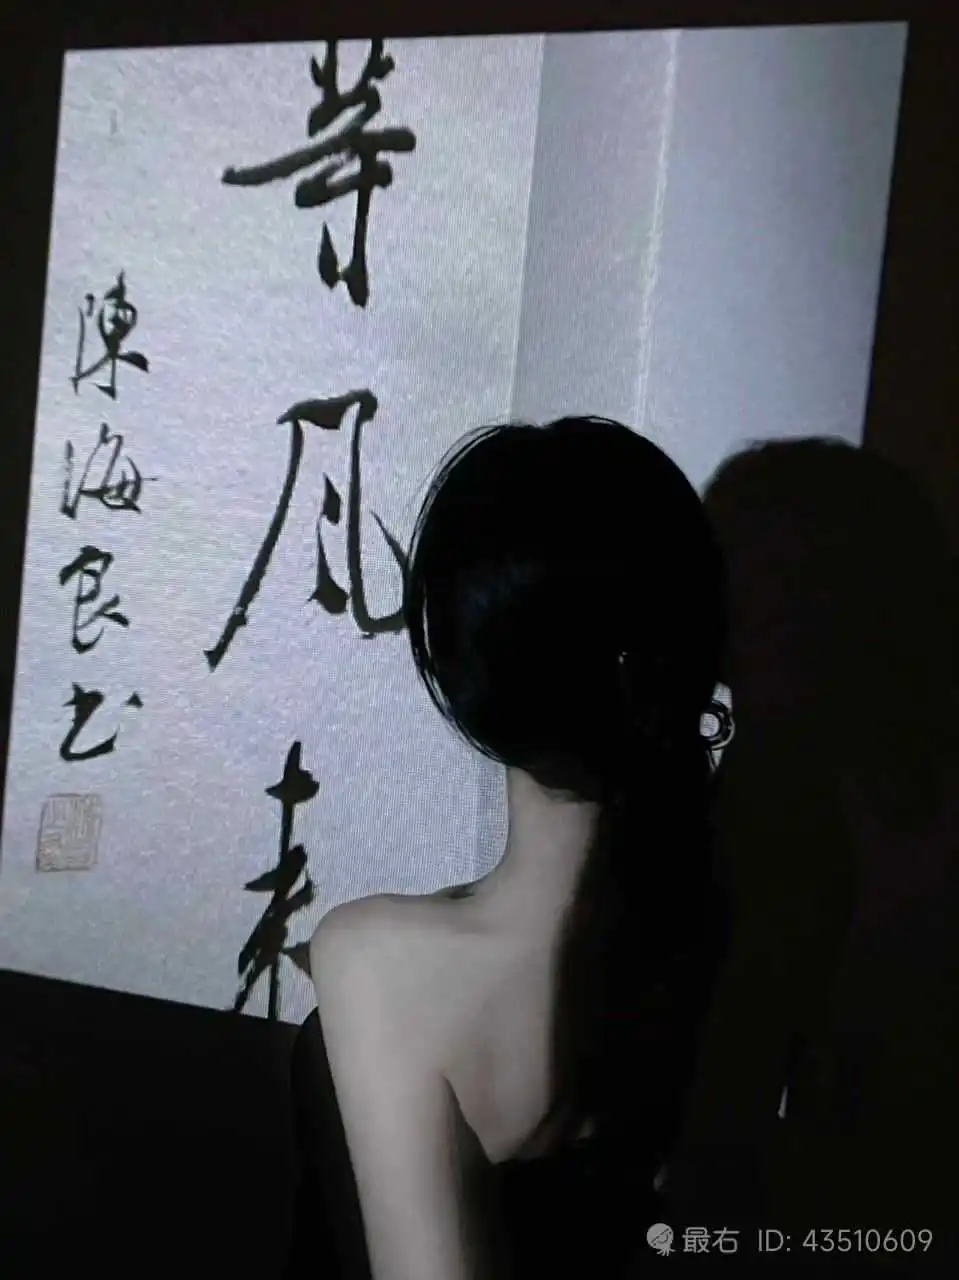 等风来
陳海良书
最右 ID: 43510609